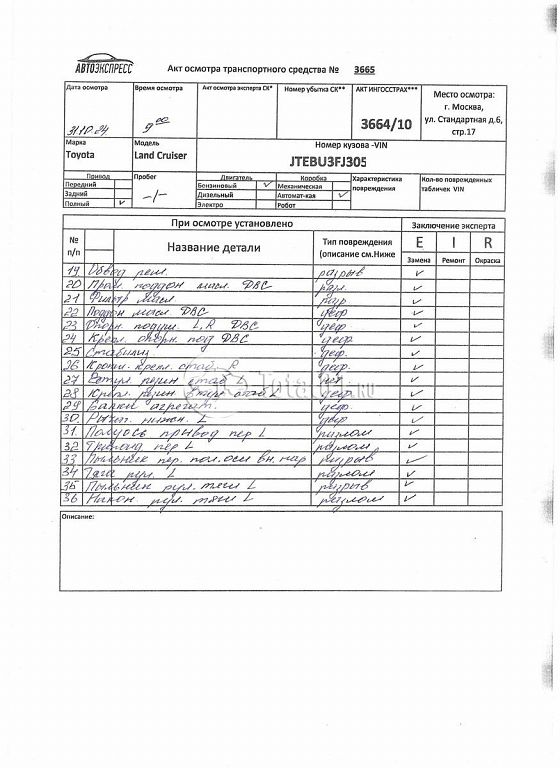 АВТОЭКСПРЕСС
Акт осмотра транспортного средства № 3665
Дата осмотра
Время осмотра
Акт осмотра эксперта СК*
Номер убытка СК**
АКТ ИНГОССТРАХ***
Место осмотра:
г. Москва,
ул. Стандартная д.6,
стр.17
9 00
3664/10
Марка
Модель
Номер кузова -VIN
Toyota
Land Cruiser
JTEBU3FJ305
Привод
Пробег
Двигатель
Коробка
Характеристика
повреждения
Кол-во поврежденных
табличек VIN
Передний
Бензиновый ✓
Механическая
Задний
-/-
Дизельный
Автомат-кая ✓
Полный ✓
Электро
Робот
При осмотре установлено
Заключение эксперта
№
п/п
Название детали
Тип повреждения
(описание см.Ниже
E I R
Замена
Ремонт
Окраска
19. Обвод рем. разрыв ✓
20 поддон масл. ДВС ✓
21 Фильтр масл. ✓
22 Поддон масл ДВС деф ✓
23 Опорн. подуш. L, R ДВС деф ✓
24 Крепл. опорн. под ДВС деф. ✓
25 Стабилиз деф. ✓
26 Кроншт. крепл. стаб. R деф. ✓
27 Втул. стаб ✓
28 Крепл. L деф. ✓
29 Балки агрегат. деф. ✓
30. Рычаг нижн. L деф ✓
31. Полуось привод пер L разлом ✓
32 пер L разлом ✓
33 Пыльник пер. пол.оси вн. нар разрыв ✓
34 Тяга рул. L разлом ✓
35 Пыльник рул. тяги L разрыв ✓
36 Након. рул. тяги L разлом ✓
Описание: